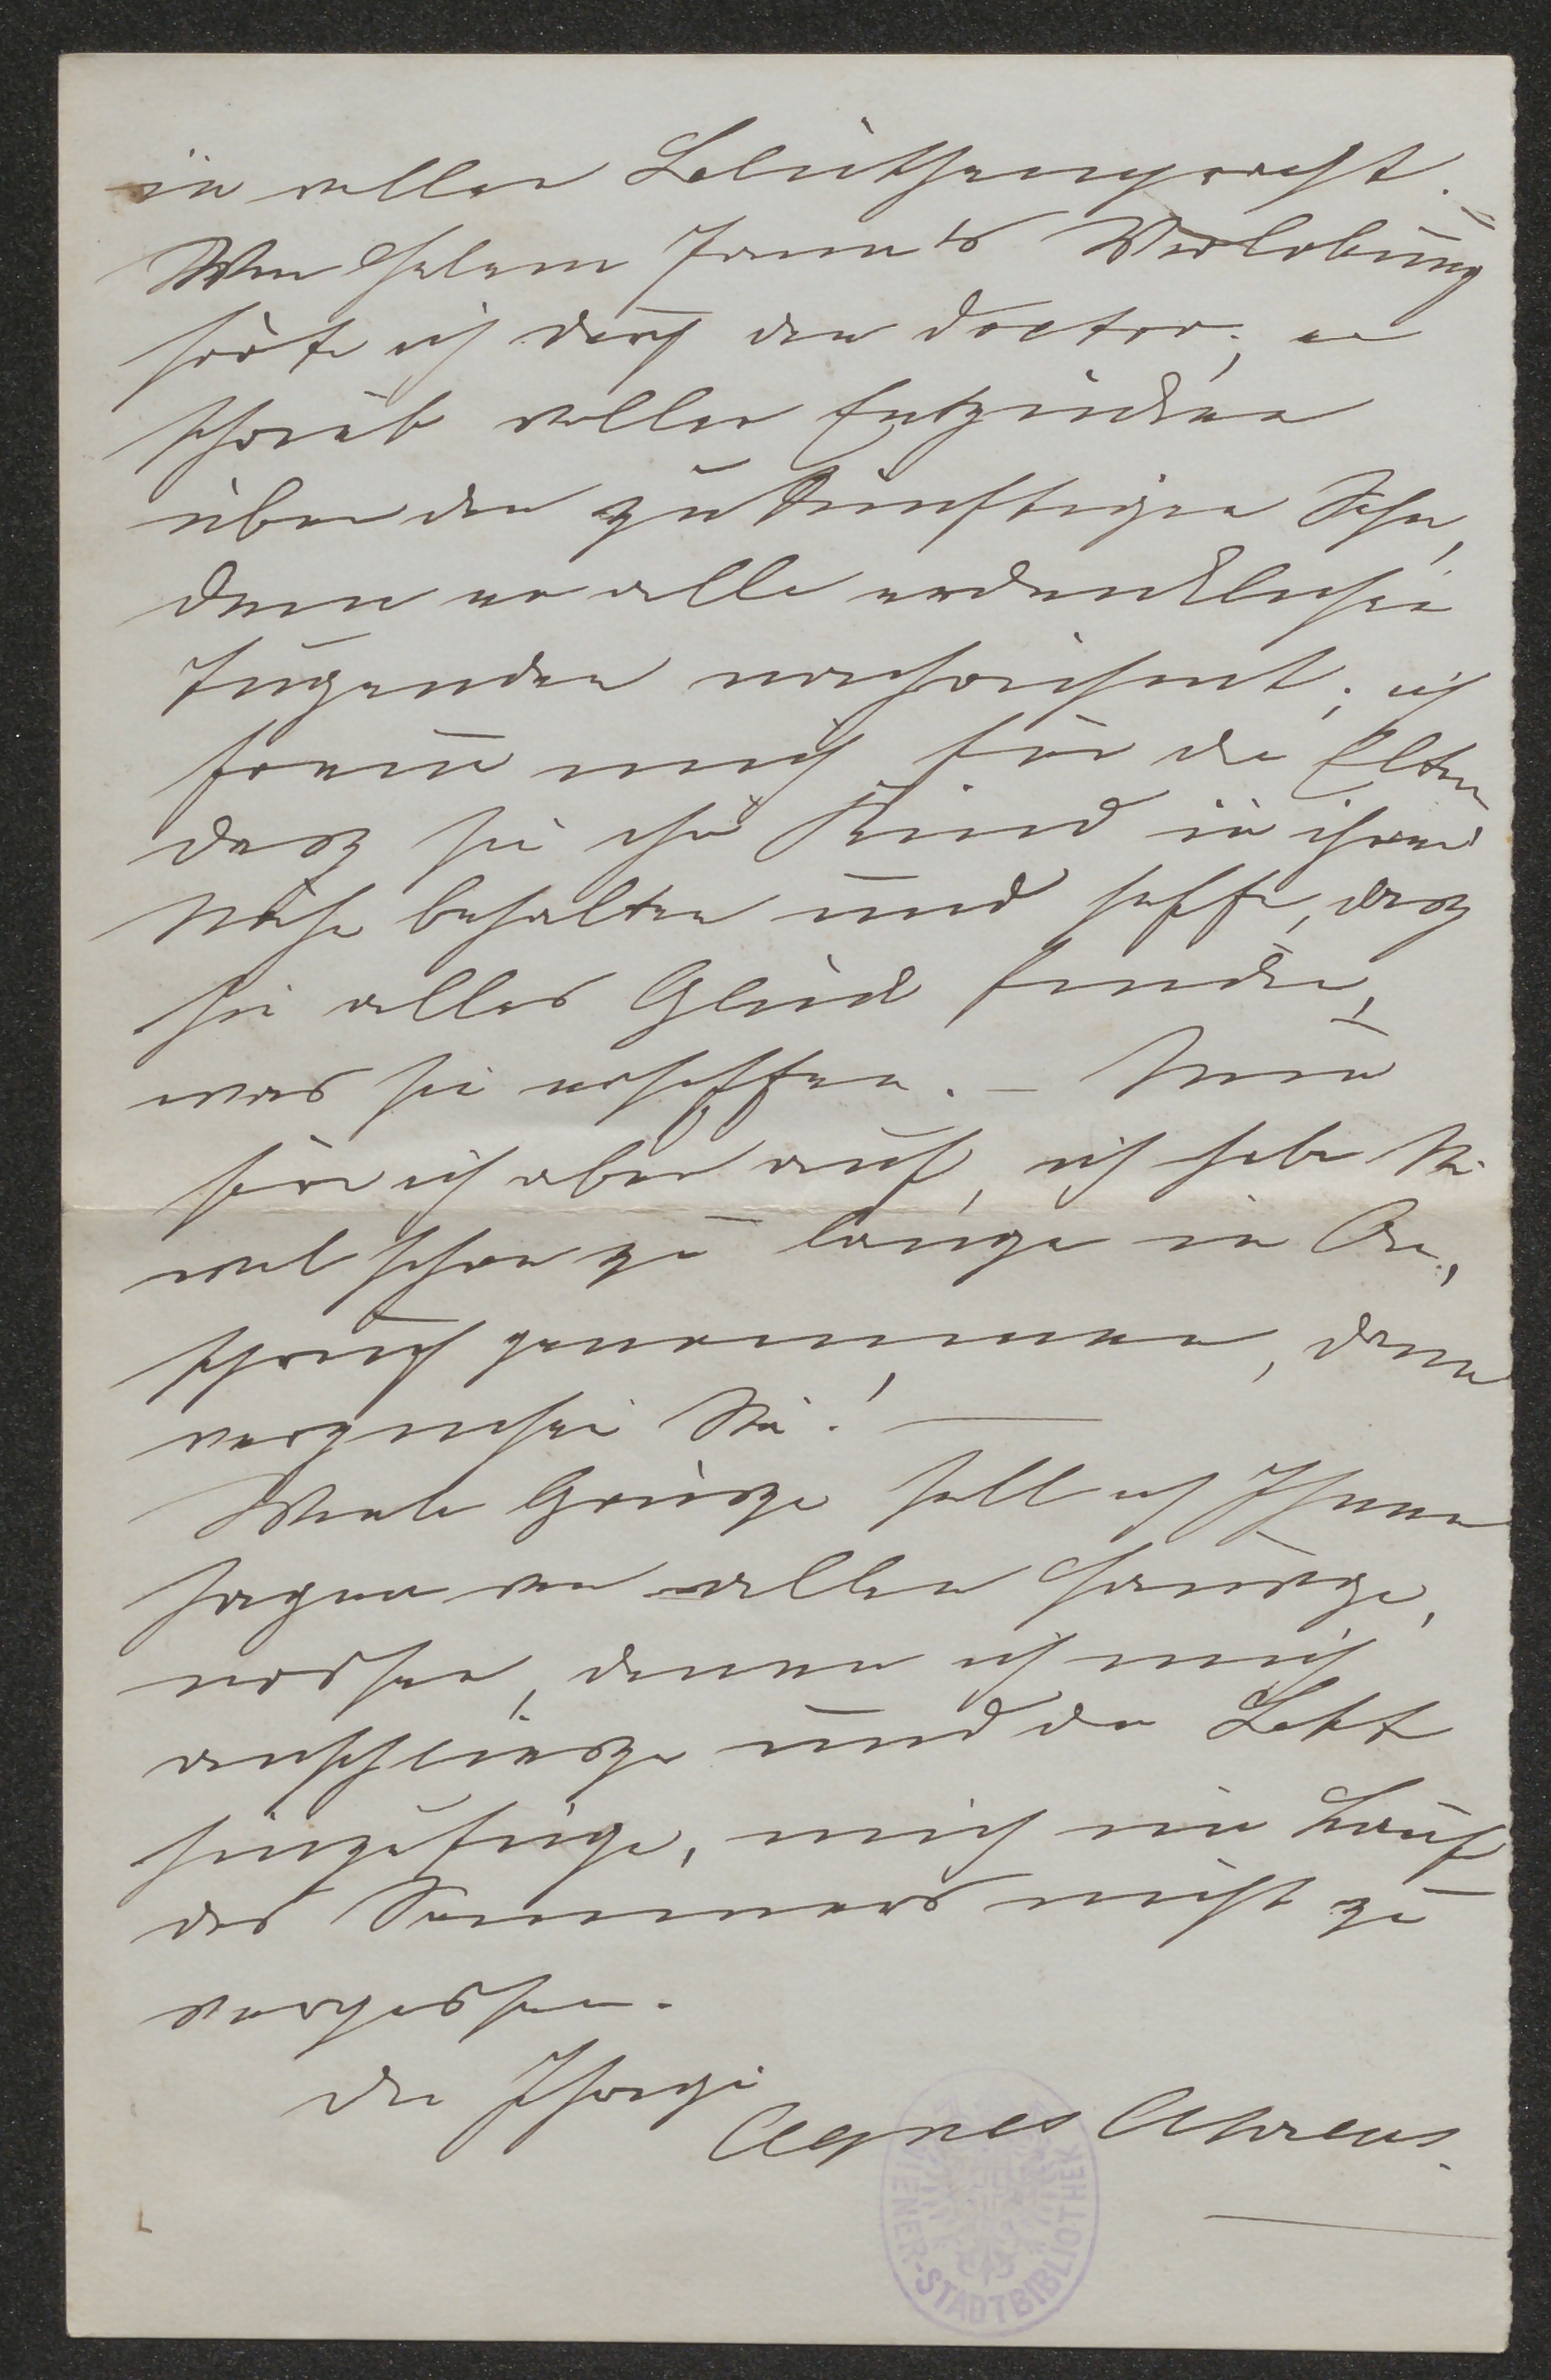 in voller Blüthenpracht.
Von Helene Verlobung
hörte ich durch den Doctor, er
schrieb voller Entzücken
über den zukünftigen Sohn,
dem er alle erdenklichen
Tugenden nachrühmt; ich
freue mich für die Eltern
dasz sie ihr Kind in ihrer
Nähe behalten und hoffe, dasz
sie alles Glück finden,
was sie erhoffen. – Nun
höre ich aber auf, ich habe Sie
wol schon zu lange in An,
spruch genommen, dann
verzeihen Sie! —
Viele Grüsze soll ich Ihnen
sagen von allen Hausge,
nossen, denen ich mich
anschliesze und die Bitte
hinzufüge, mich im Lauf
des Sommers nicht zu
vergessen.
Die Ihrige
Agnes Ahrens.
WIENER-STADTBIBLIOTHEK